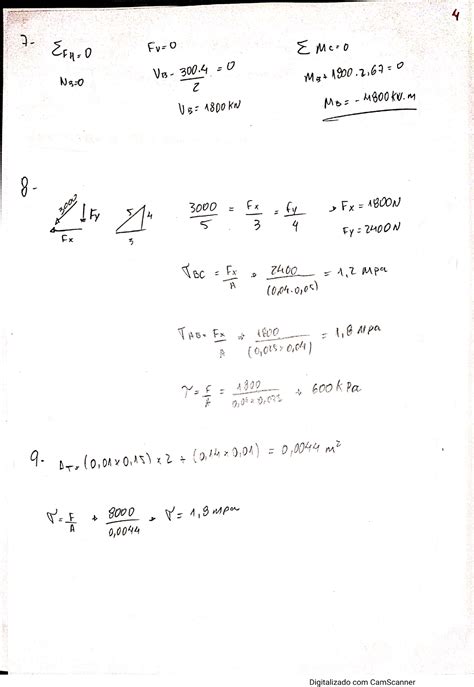 4
7- ΣFH=0 Fv=0 ΣMc=0
NB=0 VB - 300.4/2 = 0 MB+1800.2,67=0
VB=1800KN MB=-4800KN.m
8-
3000 Fy Fx 5 4 3 3000/5 = Fx/3 = fy/4 → Fx=1800N
Fy=2400N
σBC = Fx/A → 2400/(0,04.0,05) = 1,2 MPa
Fx/A → 1800/(0,025×0,04) = 1,8 MPa
τ=F/A = 1800/ → 600KPa
9- AT=(0,01×0,15)×2 + (0,14×0,01) = 0,0044 m²
σ=F/A → 8000/0,0044 → σ=1,8 MPa
Digitalizado com CamScanner